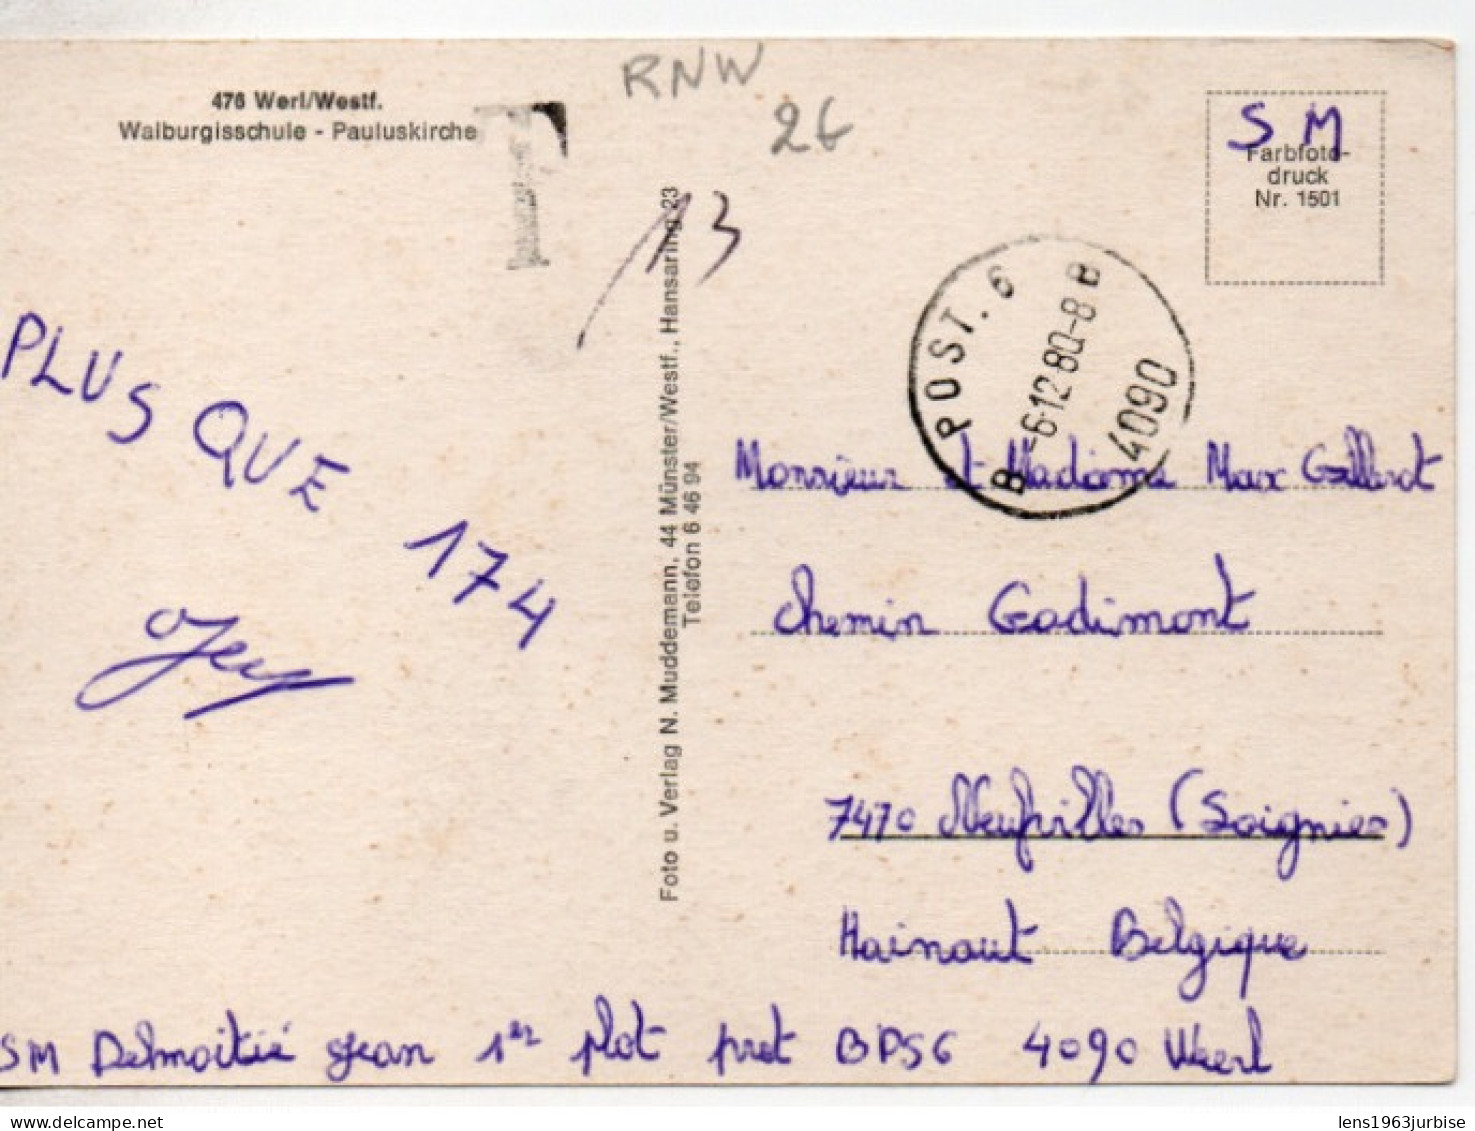 RNW
26
476 Werl/Westf.
Walburgisschule - Pauluskirche
T
13
SM
Farbfoto-
druck
Nr. 1501
POST. 6
B -6-12 80-8 B
4090
PLUS QUE 174
Jean
Foto u. Verlag N. Muddemann, 44 Münster/Westf., Hansaring 23
Telefon 6 46 94
Monsieur et Madame Max Gallerot
Chemin Gadimont
7470 Neufvilles (Soignies)
Hainaut Belgique
SM Delmoitié Jean 1er plot pret BPS6 4090 Werl
delcampe.net
lens1963jurbise